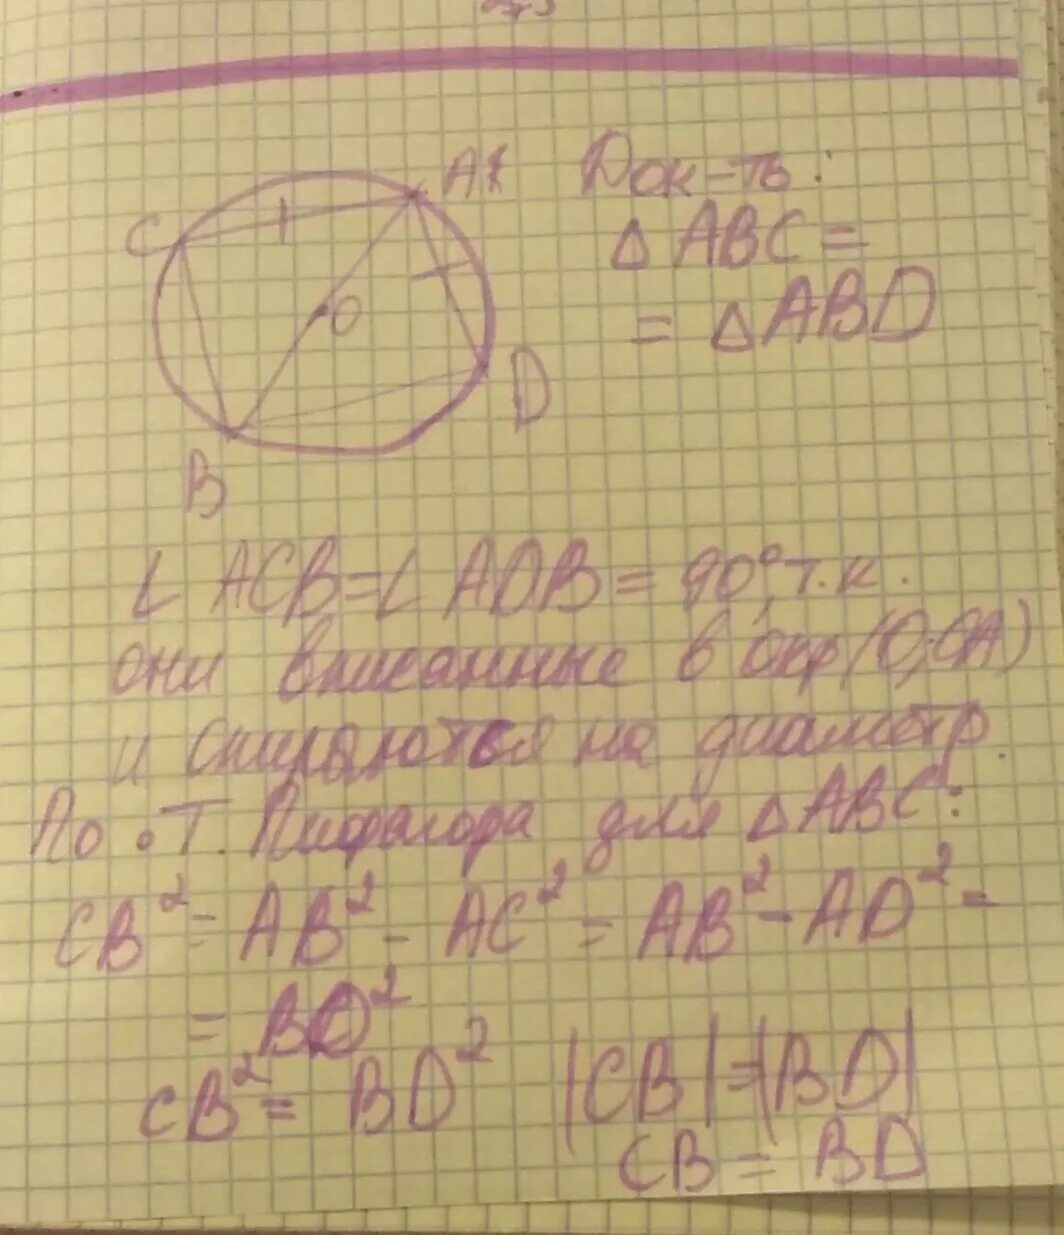 A
Док-ть:
C
△ ABC =
= △ ABD
O
D
B
∠ ACB = ∠ ADB = 90°, т.к.
они вписанные в окр(O;OA)
и опираются на диаметр.
По Т. Пифагора для △ ABC:
CB² = AB² - AC² = AB² - AD² =
= BD²
CB² = BD² |CB| = |BD|
CB = BD